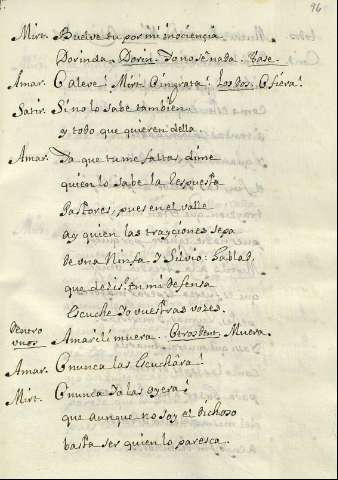 96
Mirt. Buelve tu por mi inociençia
Dorinda. Dorin. Yo no sé nada. Vase.
Amar. O aleve! Mirt. O ingrata! Los dos. O fiera!
Satir. Si no lo sabe tambien
y todo que quieren della
Amar. Ya que tu me faltas, dime
quien lo sabe la respuesta
Pastores, pues en el valle
ay quien las trayçiones sepa
de una Ninfa y Silvio: hablad,
que dezis? en mi defensa
Escuche yo vuestras vozes.
Dentro
unos Amarili muera. Otros Dent. Muera.
Amar. O nunca las Escuchára!
Mirt. O nunca yo las oyera!
que aunque no soy el dichoso
basta ser quien lo paresca.